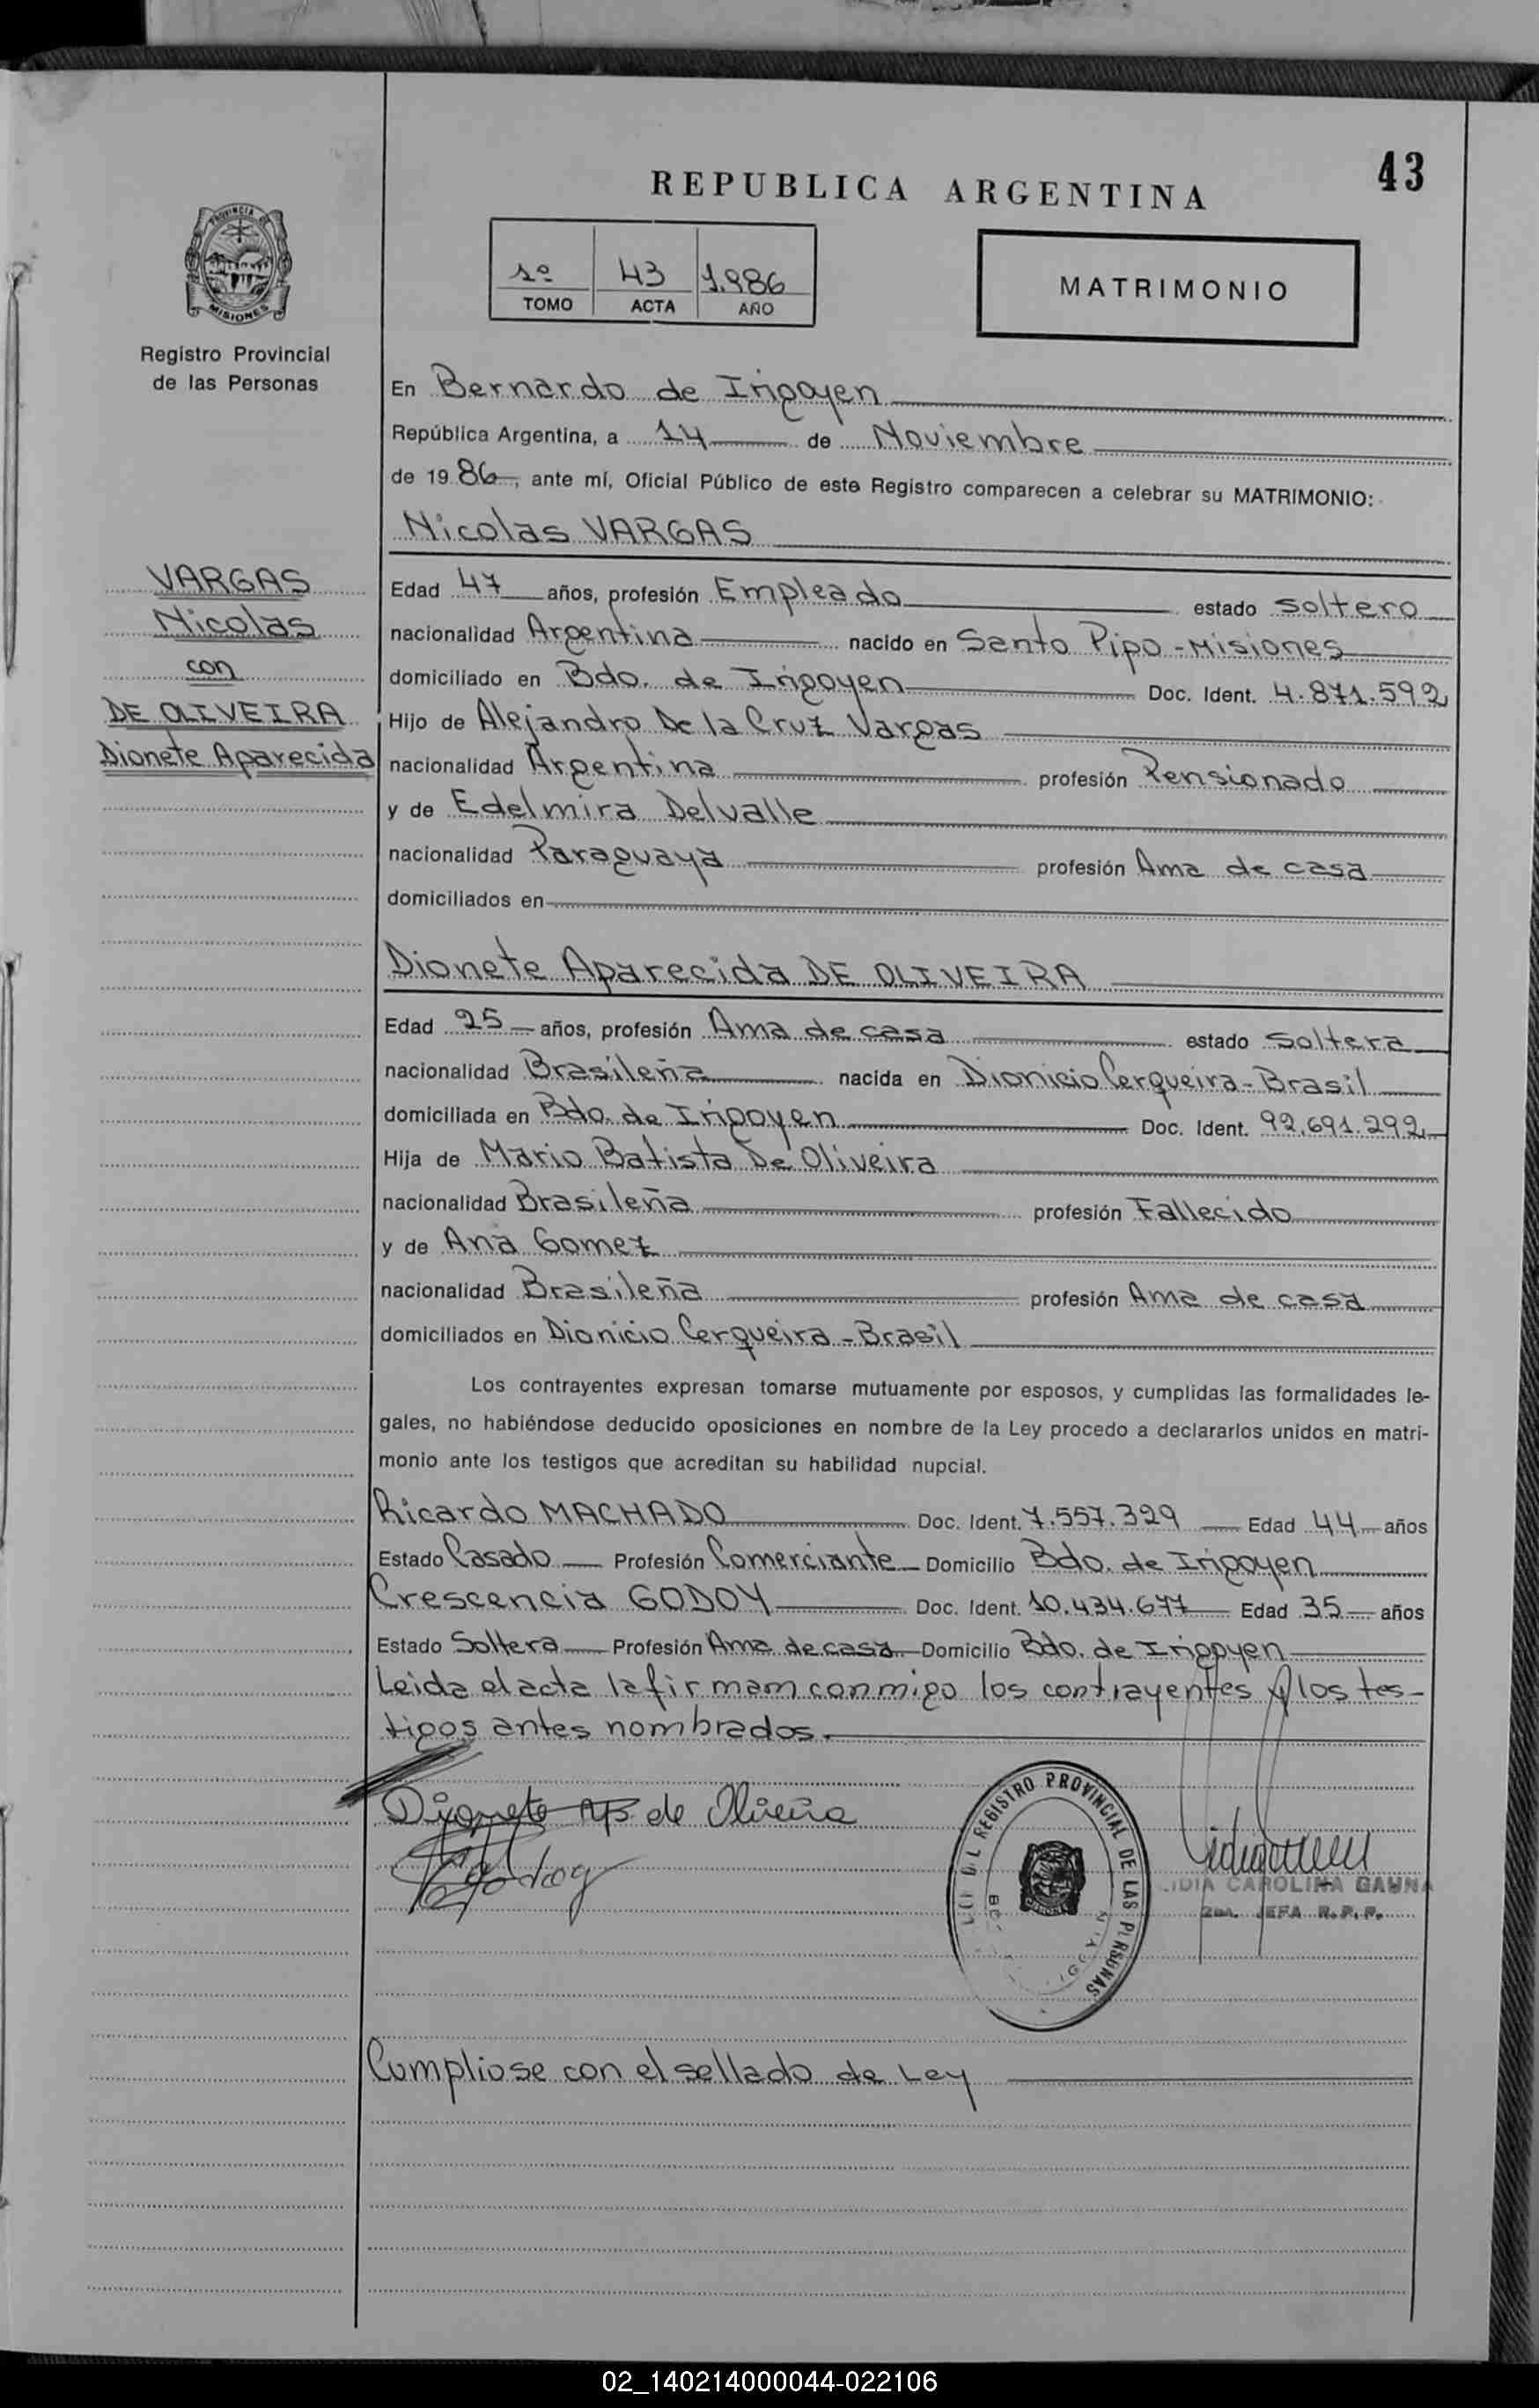 43
REPUBLICA ARGENTINA
PROVINCIA DE
MISIONES
1º 43 1.986
TOMO ACTA AÑO
MATRIMONIO
Registro Provincial
de las Personas
En Bernardo de Irigoyen
República Argentina, a 14 de Noviembre
de 19 86, ante mí, Oficial Público de este Registro comparecen a celebrar su MATRIMONIO:
Nicolas VARGAS
VARGAS
Nicolas
con
DE OLIVEIRA
Dionete Aparecida
Edad 47 años, profesión Empleado estado soltero
nacionalidad Argentina nacido en Santo Pipo - Misiones
domiciliado en Bdo. de Irigoyen Doc. Ident. 4.871.592
Hijo de Alejandro De la Cruz Vargas
nacionalidad Argentina profesión Pensionado
y de Edelmira Delvalle
nacionalidad Paraguaya profesión Ama de casa
domiciliados en
Dionete Aparecida DE OLIVEIRA
Edad 25 años, profesión Ama de casa estado Soltera
nacionalidad Brasileña nacida en Dionicio Cerqueira - Brasil
domiciliada en Bdo. de Irigoyen Doc. Ident. 92.691.292
Hija de Mario Batista De Oliveira
nacionalidad Brasileña profesión Fallecido
y de Ana Gomez
nacionalidad Brasileña profesión Ama de casa
domiciliados en Dionicio Cerqueira - Brasil
Los contrayentes expresan tomarse mutuamente por esposos, y cumplidas las formalidades le-
gales, no habiéndose deducido oposiciones en nombre de la Ley procedo a declararlos unidos en matri-
monio ante los testigos que acreditan su habilidad nupcial.
Ricardo MACHADO Doc. Ident. 7.557.329 Edad 44 años
Estado Casado Profesión Comerciante Domicilio Bdo. de Irigoyen
Crescencia GODOY Doc. Ident. 10.434.677 Edad 35 años
Estado Soltera Profesión Ama de casa Domicilio Bdo. de Irigoyen
Leida el acta la firmam conmigo los contrayentes y los tes-
tigos antes nombrados.
Dionete Ap de Oliveira
Godoy
REGISTRO PROVINCIAL DE LAS PERSONAS
LIDIA CAROLINA GAUNA
JEFA R.P.P.
Cumpliose con el sellado de Ley
02_140214000044-022106